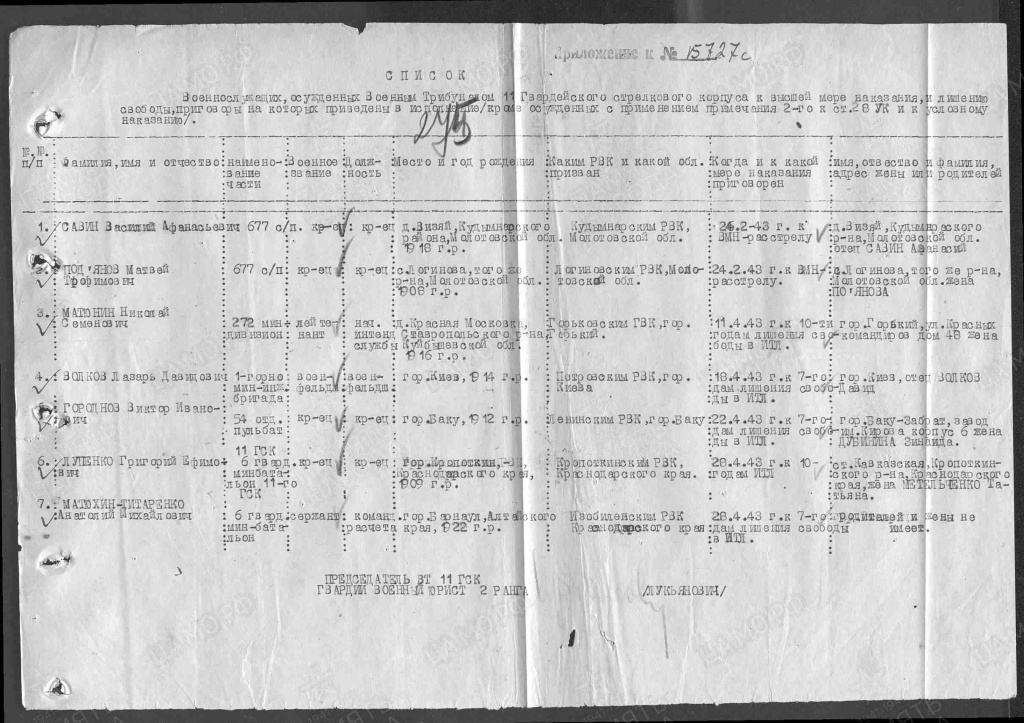 Приложение к № 15727с
СПИСОК
Военнослужащих, осужденных Военным Трибуналом 11 Гвардейского стрелкового корпуса к высшей мере наказания, и лишению
свободы, приговоры на которых приведены в исполнение/кроме осужденных с применением примечания 2-го к ст.28 УК и к условному
наказанию/.
№.№. п/п : Фамилия, имя и отчество : наимено-вание части : Военное звание : Долж-ность : Место и год рождения : Каким РВК и какой обл. призван : Когда и к какой мере наказания приговорен : имя, отчество и фамилия, адрес жены или родителей
1. САВИН Василий Афанасьевич 677 с/п. кр-ец : кр-ец д.Визяй, Кудымкарского Кудымкарским РВК, 24.2-43 г. к д.Визяй, Кудымкарского
района, Молотовской обл. Молотовской обл. ВМН-расстрелу р-на, Молотовской обл.
1918 г.р. отец САВИН Афанасий
2. ПОД'ЯНОВ Матвей 677 с/п кр-ец кр-ец с.Логинова, того же Логиновским РВК, Моло- 24.2.43 г.к ВМН- с.Логинова, того же р-на,
Трофимович р-на, Молотовской обл. товской обл. расстрелу. Молотовской обл. жена
1908 г.р. ПО'ЯНОВА
3. МАТЮНИН Николай
Семенович 272 мин- лейте- нач. д.Красная Московка, Горьковским ГВК, гор. 11.4.43 г.к 10-ти гор.Горький, ул.Красных
дивизион нант интенд. Ставропольского р-на Горький. годам лишения сво- командиров дом 48 жена
службы Куйбышевской обл. боды в ИТЛ.
1916 г.р.
4. ВОЛКОВ Лазарь Давидович 1-горно воен- воен- гор.Киев, 1914 г.р. Петровским РВК, гор. 18.4.43 г.к 7-го- гор.Киев, отец ВОЛКОВ
мин-инж. фельдш. фельдш. Киева дам лишения свобо- Давид
бригада ды в ИТЛ.
ГОРОДНОВ Виктор Ивано-
вич 54 отд. кр-ец кр-ец гор.Баку, 1912 г.р. Ленинским РВК, гор.Баку 22.4.43 г.к 7-го- гор.Баку-Забрат, завод
пульбат дам лишения свобо- им.Кирова корпус 6 жена
ды в ИТЛ. ДУБИНИНА Зинаида.
11 ГСК
6. ЛУПЕНКО Григорий Ефимо- 6 гвард. кр-ец кр-ец гор.Кропоткин, Кропоткинским РВК, 28.4.43 г.к 10- ст.Кавказская, Кропоткин-
вич минбата- Краснодарского края, Краснодарского края. годам ИТЛ ского р-на, Краснодарского
льон 11-го 1909 г.р. края, жена МЕТЕЛЬЧЕНКО Та-
ГСК тьяна.
7. МАТЮХИН-ТИТАРЕНКО
Анатолий Михайлович 6 гвард. сержант команд. гор.Барнаул, Алтайского Изобиленским РВК 28.4.43 г.к 7-го- родителей и жены не
мин-бата- расчета края, 1922 г.р. Краснодарского края дам лишения свободы имеет.
льон в ИТЛ.
ПРЕДСЕДАТЕЛЬ ВТ 11 ГСК
ГВАРДИИ ВОЕННЫЙ ЮРИСТ 2 РАНГА /ЛУКЬЯНОВИЧ/